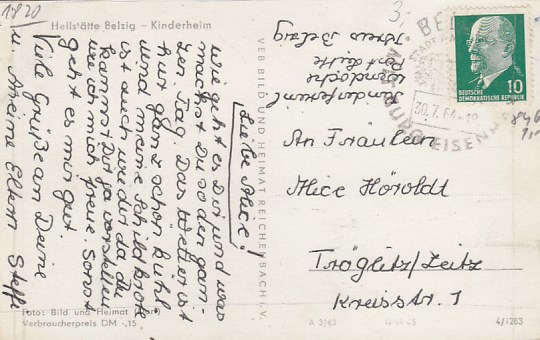 1820
Heilstätte Belzig – Kinderheim
Liebe Alice!
wie geht es Dir und was
machst Du so den gan-
zen Tag. Das Wetter ist
hier ganz schön kühl
und meine Schildkröte
ist auch wieder da du
kannst Dir ja vorstellen
wie ich mich freue. Sonst
geht es mir gut.
Viele Grüße an Deine
u. Meine Eltern Steffi
Foto: Bild und Heimat
Verbraucherpreis DM -,15
VEB BILD UND HEIMAT REICHENBACH i. V.
A 3/63
4/1263
3,-
Post
Kreis Belzig
30.7.64-18
EISENH
DEUTSCHE
DEMOKRATISCHE REPUBLIK
10
An Fräulein
Alice Höroldt
Tröglitz/Zeitz
Kreisstr. 1